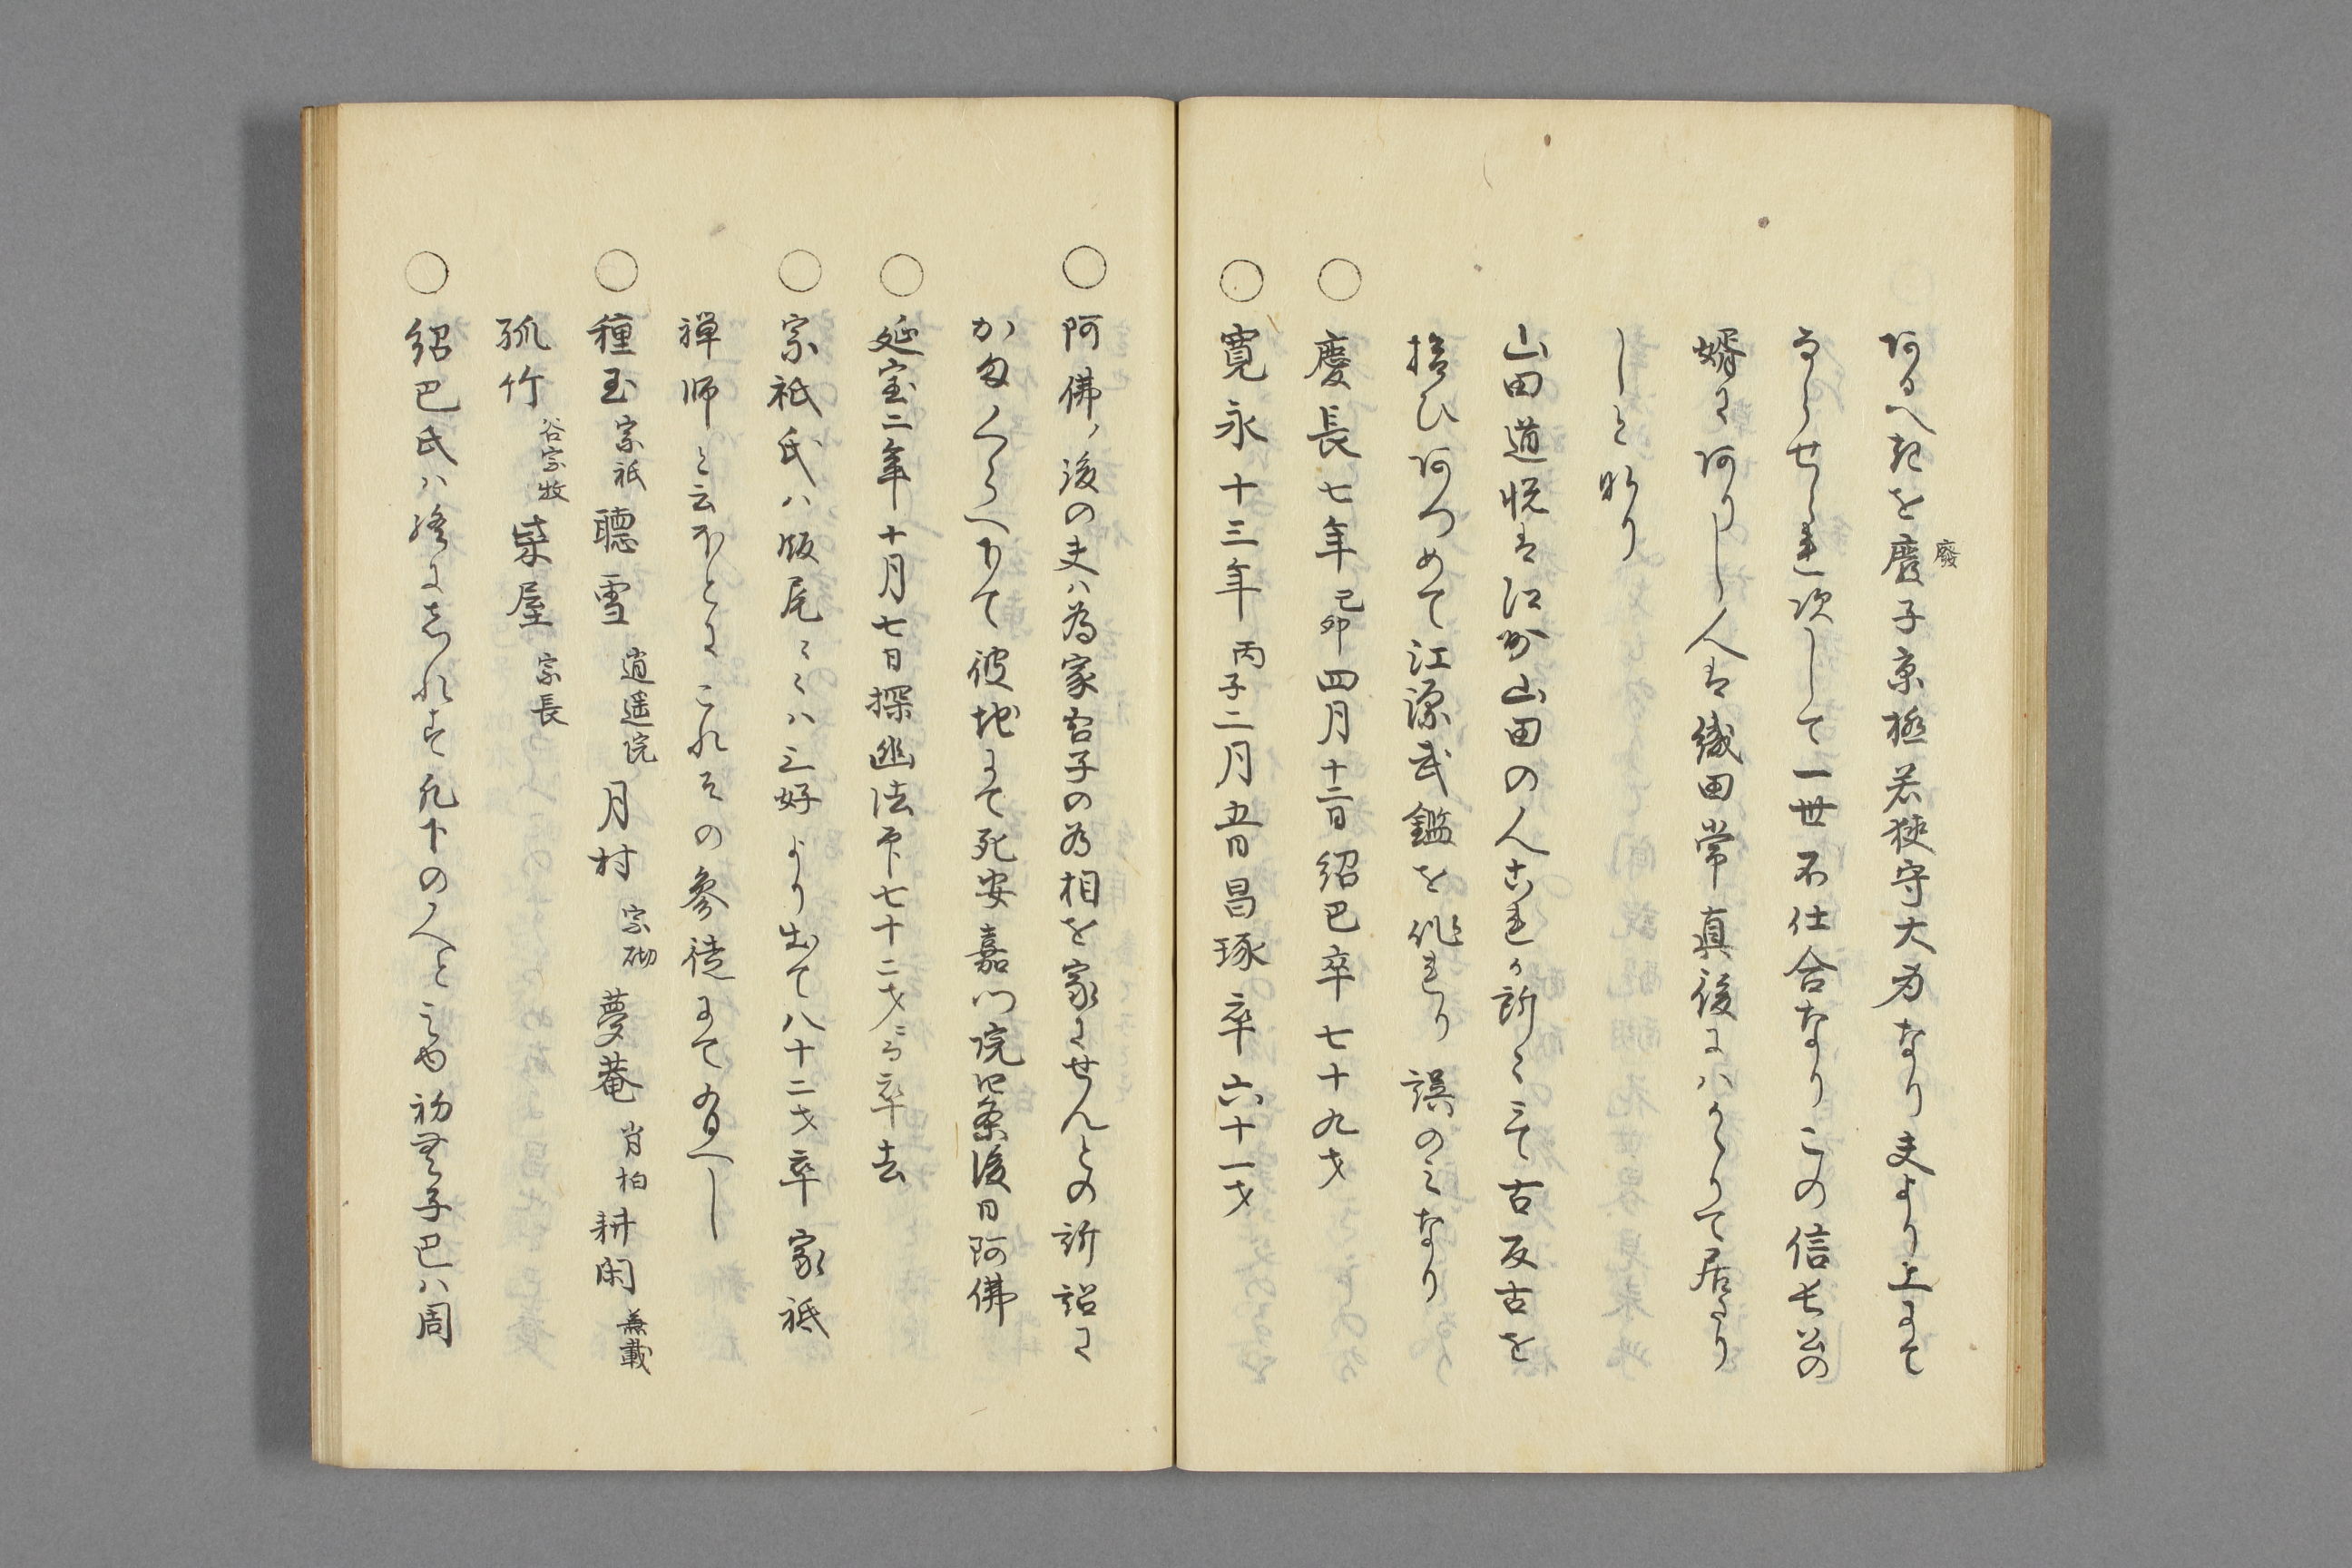 阿るへきを廢子京極若狭守大力なり夫より上まて
廢
ならせられ次して一世不仕合なりこの信長公の
婿に阿りし人は織田常真後にハかゝりて居たり
しと也
山田道悦は江州山田の人これか所にて古反古を
拾ひ阿つめて江源武鑑を作れり誤のミなり
○慶長七年己卯四月十二日紹巴卒七十九才
○寛永十三年丙子二月五日昌琢卒六十一才
○阿佛ハ後の夫ハ為家名子の為相を家にせんとの訴詔に
かまくらへ下りて彼地にて死安嘉門院四条後日阿佛
○延宝二年十月七日探幽法印七十二才ニ而卒去
○宗祇氏ハ飯尾ミミハ三好より出て八十二才卒家祇
禅師と云ほとにこれその参徒にて有へし
○種玉宗祇聴雪逍遥院月村宗碩夢菴肖柏耕閑兼載
孤竹谷宗牧柴屋宗長
○紹巴氏ハ終にしられす凡下の人と云や初無子巴ハ周